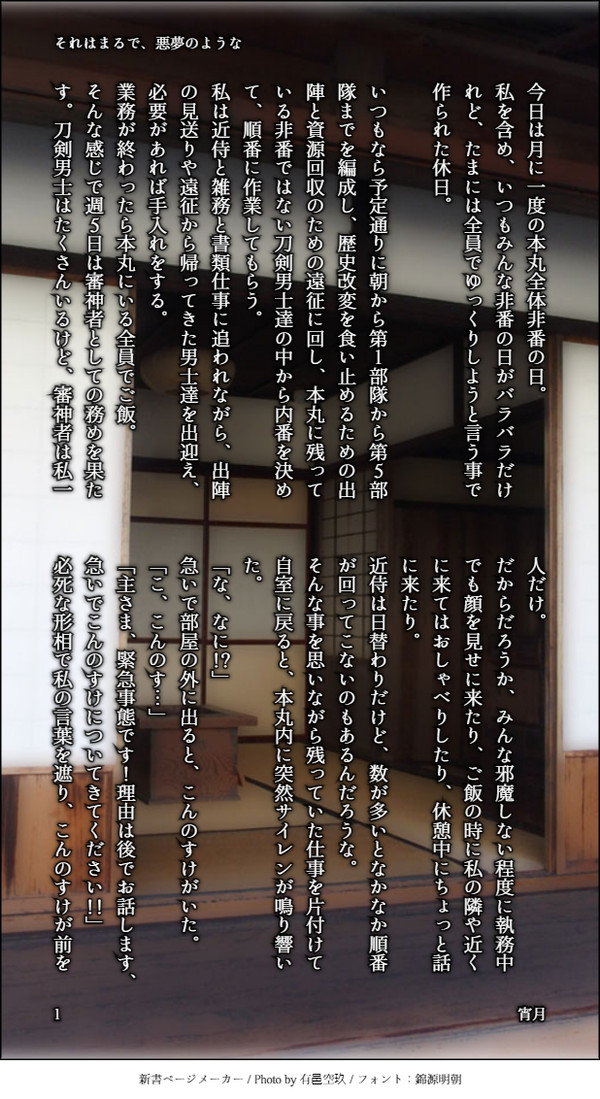 それはまるで、悪夢のような
今日は月に一度の本丸全体非番の日。
私を含め、いつもみんな非番の日がバラバラだけ
れど、たまには全員でゆっくりしようと言う事で
作られた休日。
いつもなら予定通りに朝から第1部隊から第5部
隊までを編成し、歴史改変を食い止めるための出
陣と資源回収のための遠征に回し、本丸に残って
いる非番ではない刀剣男士達の中から内番を決め
て、順番に作業してもらう。
私は近侍と雑務と書類仕事に追われながら、出陣
の見送りや遠征から帰ってきた男士達を出迎え、
必要があれば手入れをする。
業務が終わったら本丸にいる全員でご飯。
そんな感じで週5日は審神者としての務めを果た
す。刀剣男士はたくさんいるけど、審神者は私一
人だけ。
だからだろうか、みんな邪魔しない程度に執務中
でも顔を見せに来たり、ご飯の時に私の隣や近く
に来てはおしゃべりしたり、休憩中にちょっと話
に来たり。
近侍は日替わりだけど、数が多いとなかなか順番
が回ってこないのもあるんだろうな。
そんな事を思いながら残っていた仕事を片付けて
自室に戻ると、本丸内に突然サイレンが鳴り響い
た。
「な、なに!?」
急いで部屋の外に出ると、こんのすけがいた。
「こ、こんのす…」
「主さま、緊急事態です！理由は後でお話します、
急いでこんのすけについてきてください!!」
必死な形相で私の言葉を遮り、こんのすけが前を
1
宵月
新書ページメーカー / Photo by 有邑空玖 / フォント：錦源明朝